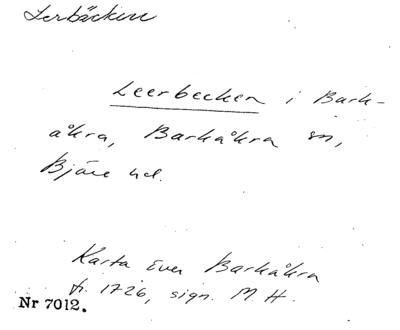 Lerbäcken
Leerbecken i Bark-
åkra, Barkåkra sn,
Bjäre hd.
Karta över Barkåkra
fr. 1726, sign. M. H.
Nr 7012.